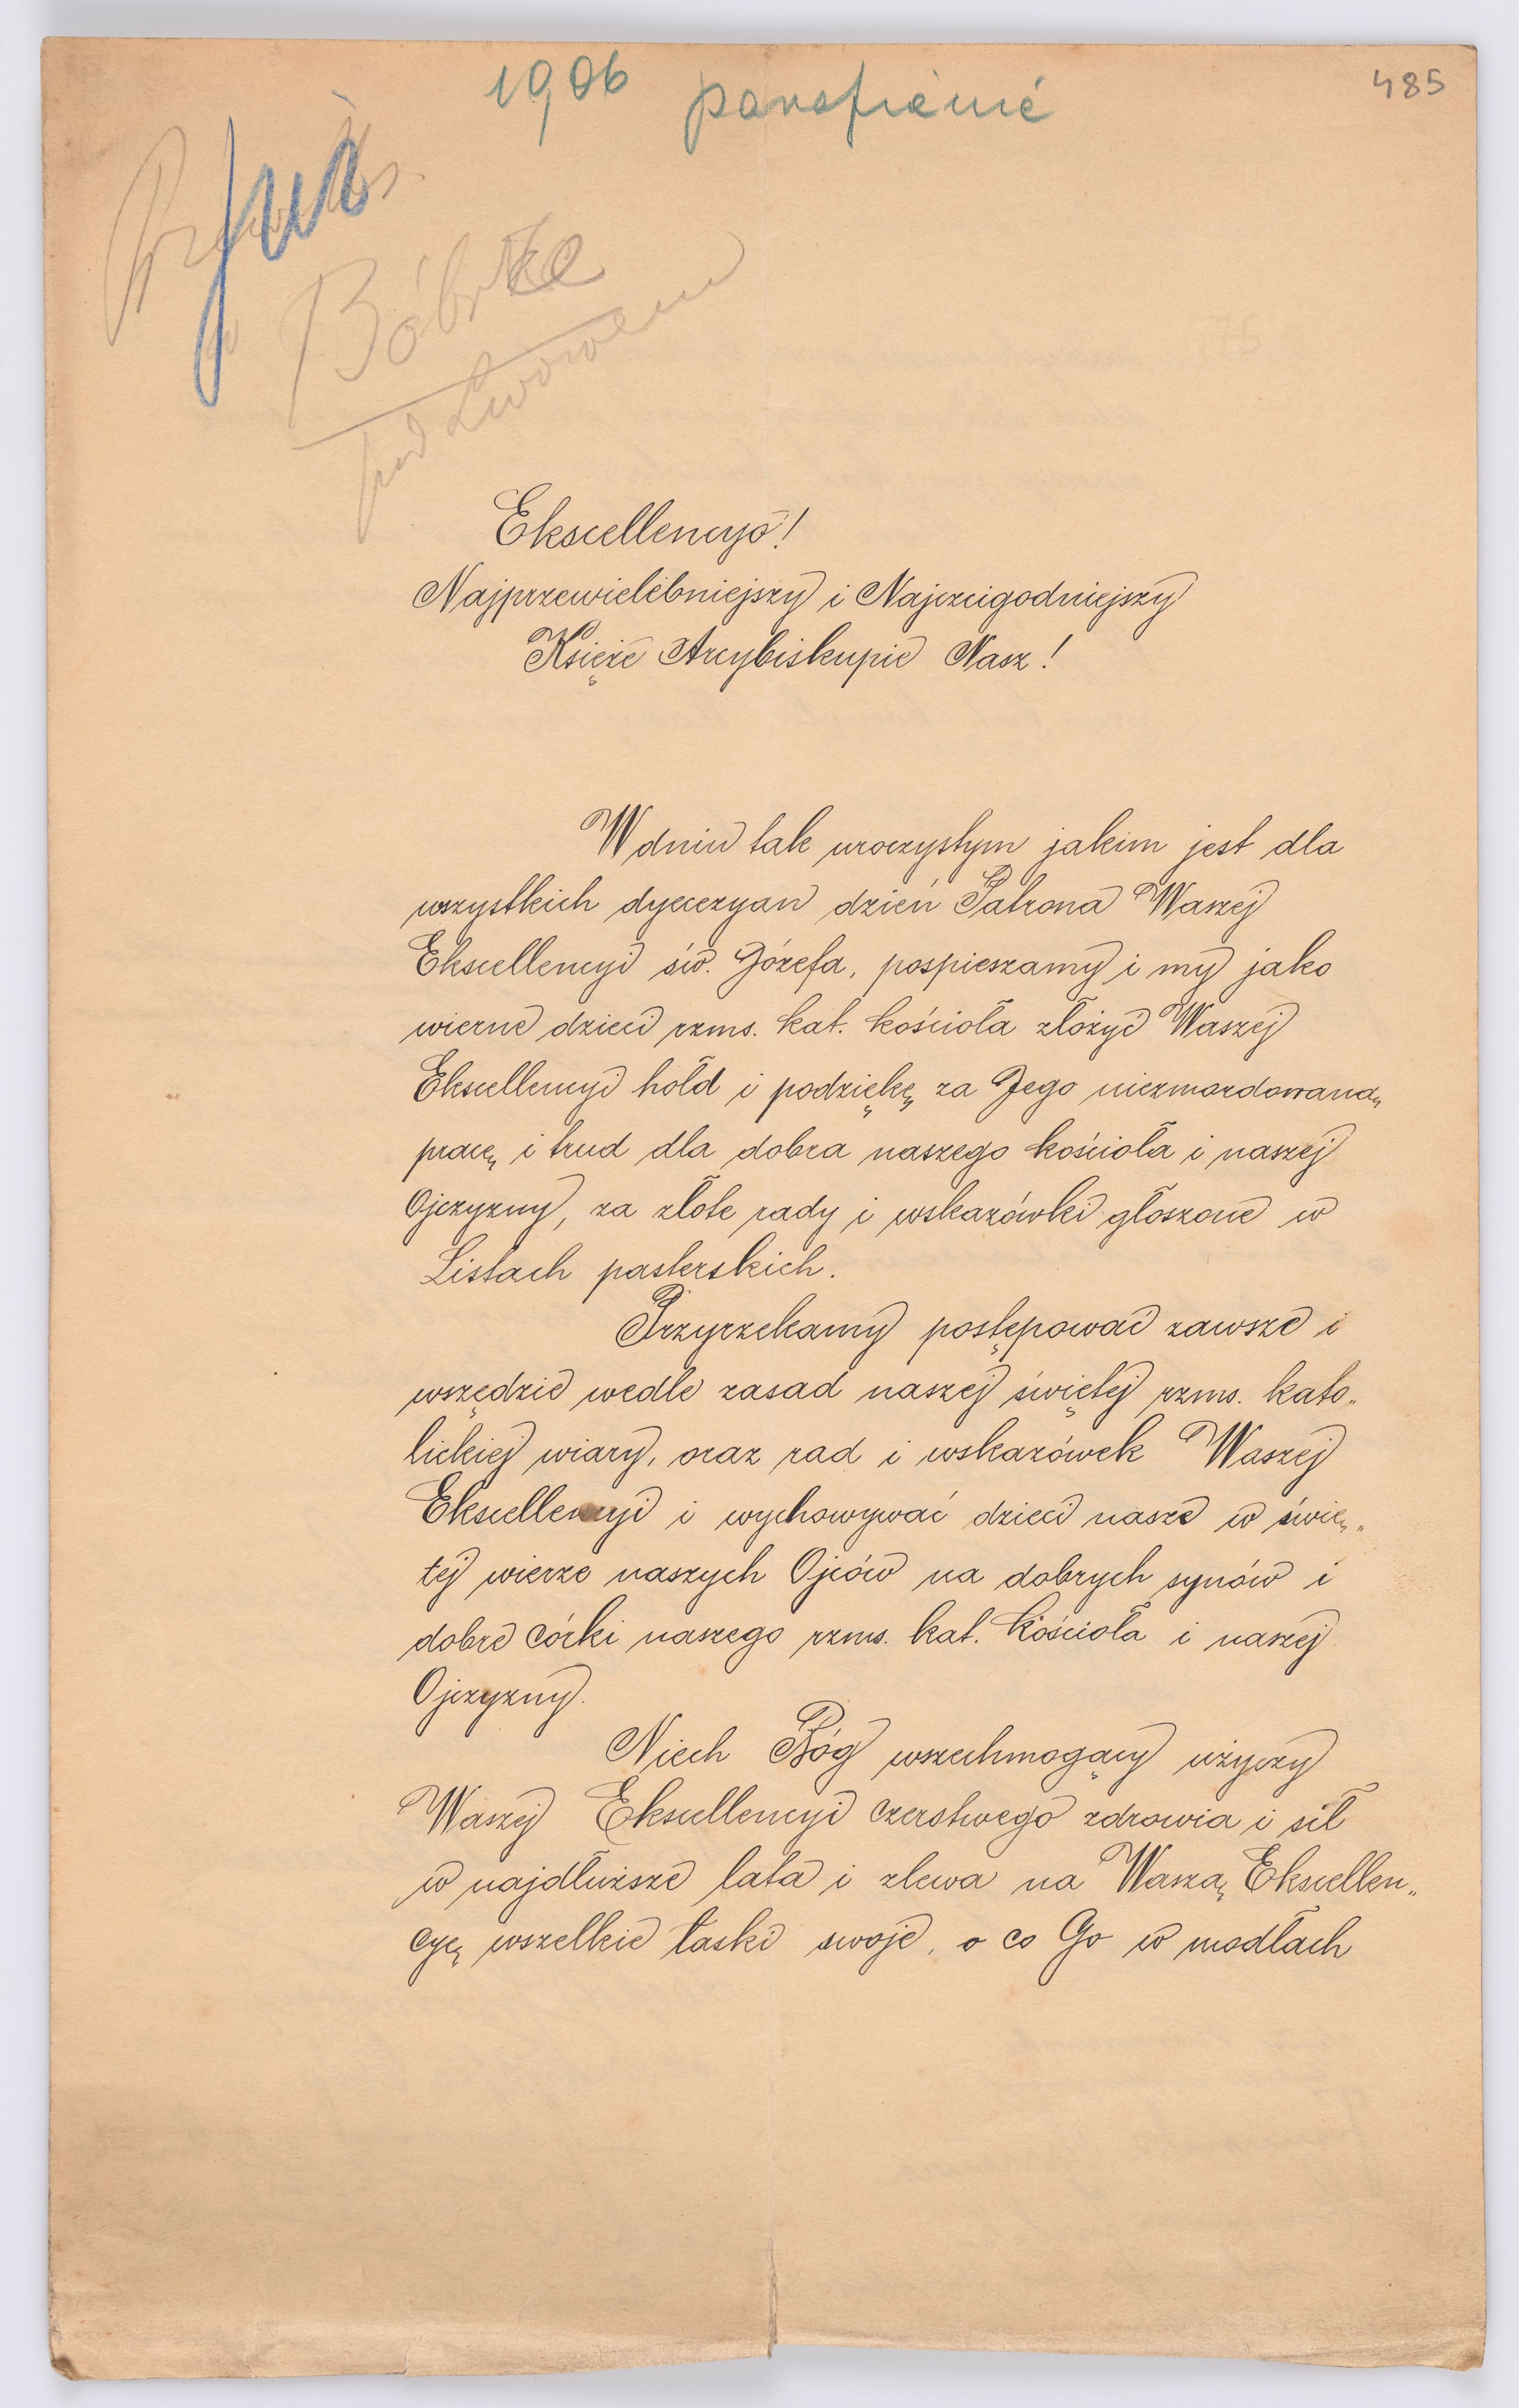 1906 parafianie
485
już
Bóbrka
pod Lwowem
Ekscellencyo!
Najprzewielebniejszy i Najczcigodniejszy
Księże Arcybiskupie Nasz!
W dniu tak uroczystym jakim jest dla
wszystkich dyecezyan dzień Patrona Waszej
Ekscellencyi św. Józefa, pospieszamy i my jako
wierne dzieci rzms. kat. kościoła złożyć Waszej
Ekscellencyi hołd i podziękę za Jego niezmordowaną
pracę i trud dla dobra naszego kościoła i naszej
Ojczyzny, za złote rady i wskazówki głoszone w
Listach pasterskich.
Przyrzekamy postępować zawsze i
wszędzie wedle zasad naszej świętej rzms. kato„
lickiej wiary, oraz rad i wskazówek Waszej
Ekscellencyi i wychowywać dzieci nasze w świę„
tej wierze naszych Ojców na dobrych synów i
dobre córki naszego rzms. kat. Kościoła i naszej
Ojczyzny.
Niech Bóg wszechmogący użyczy
Waszej Ekscellencyi czerstwego zdrowia i sił
w najdłuższe lata i zlewa na Waszą Ekscellen„
cyę wszelkie łaski swoje, o co Go w modłach